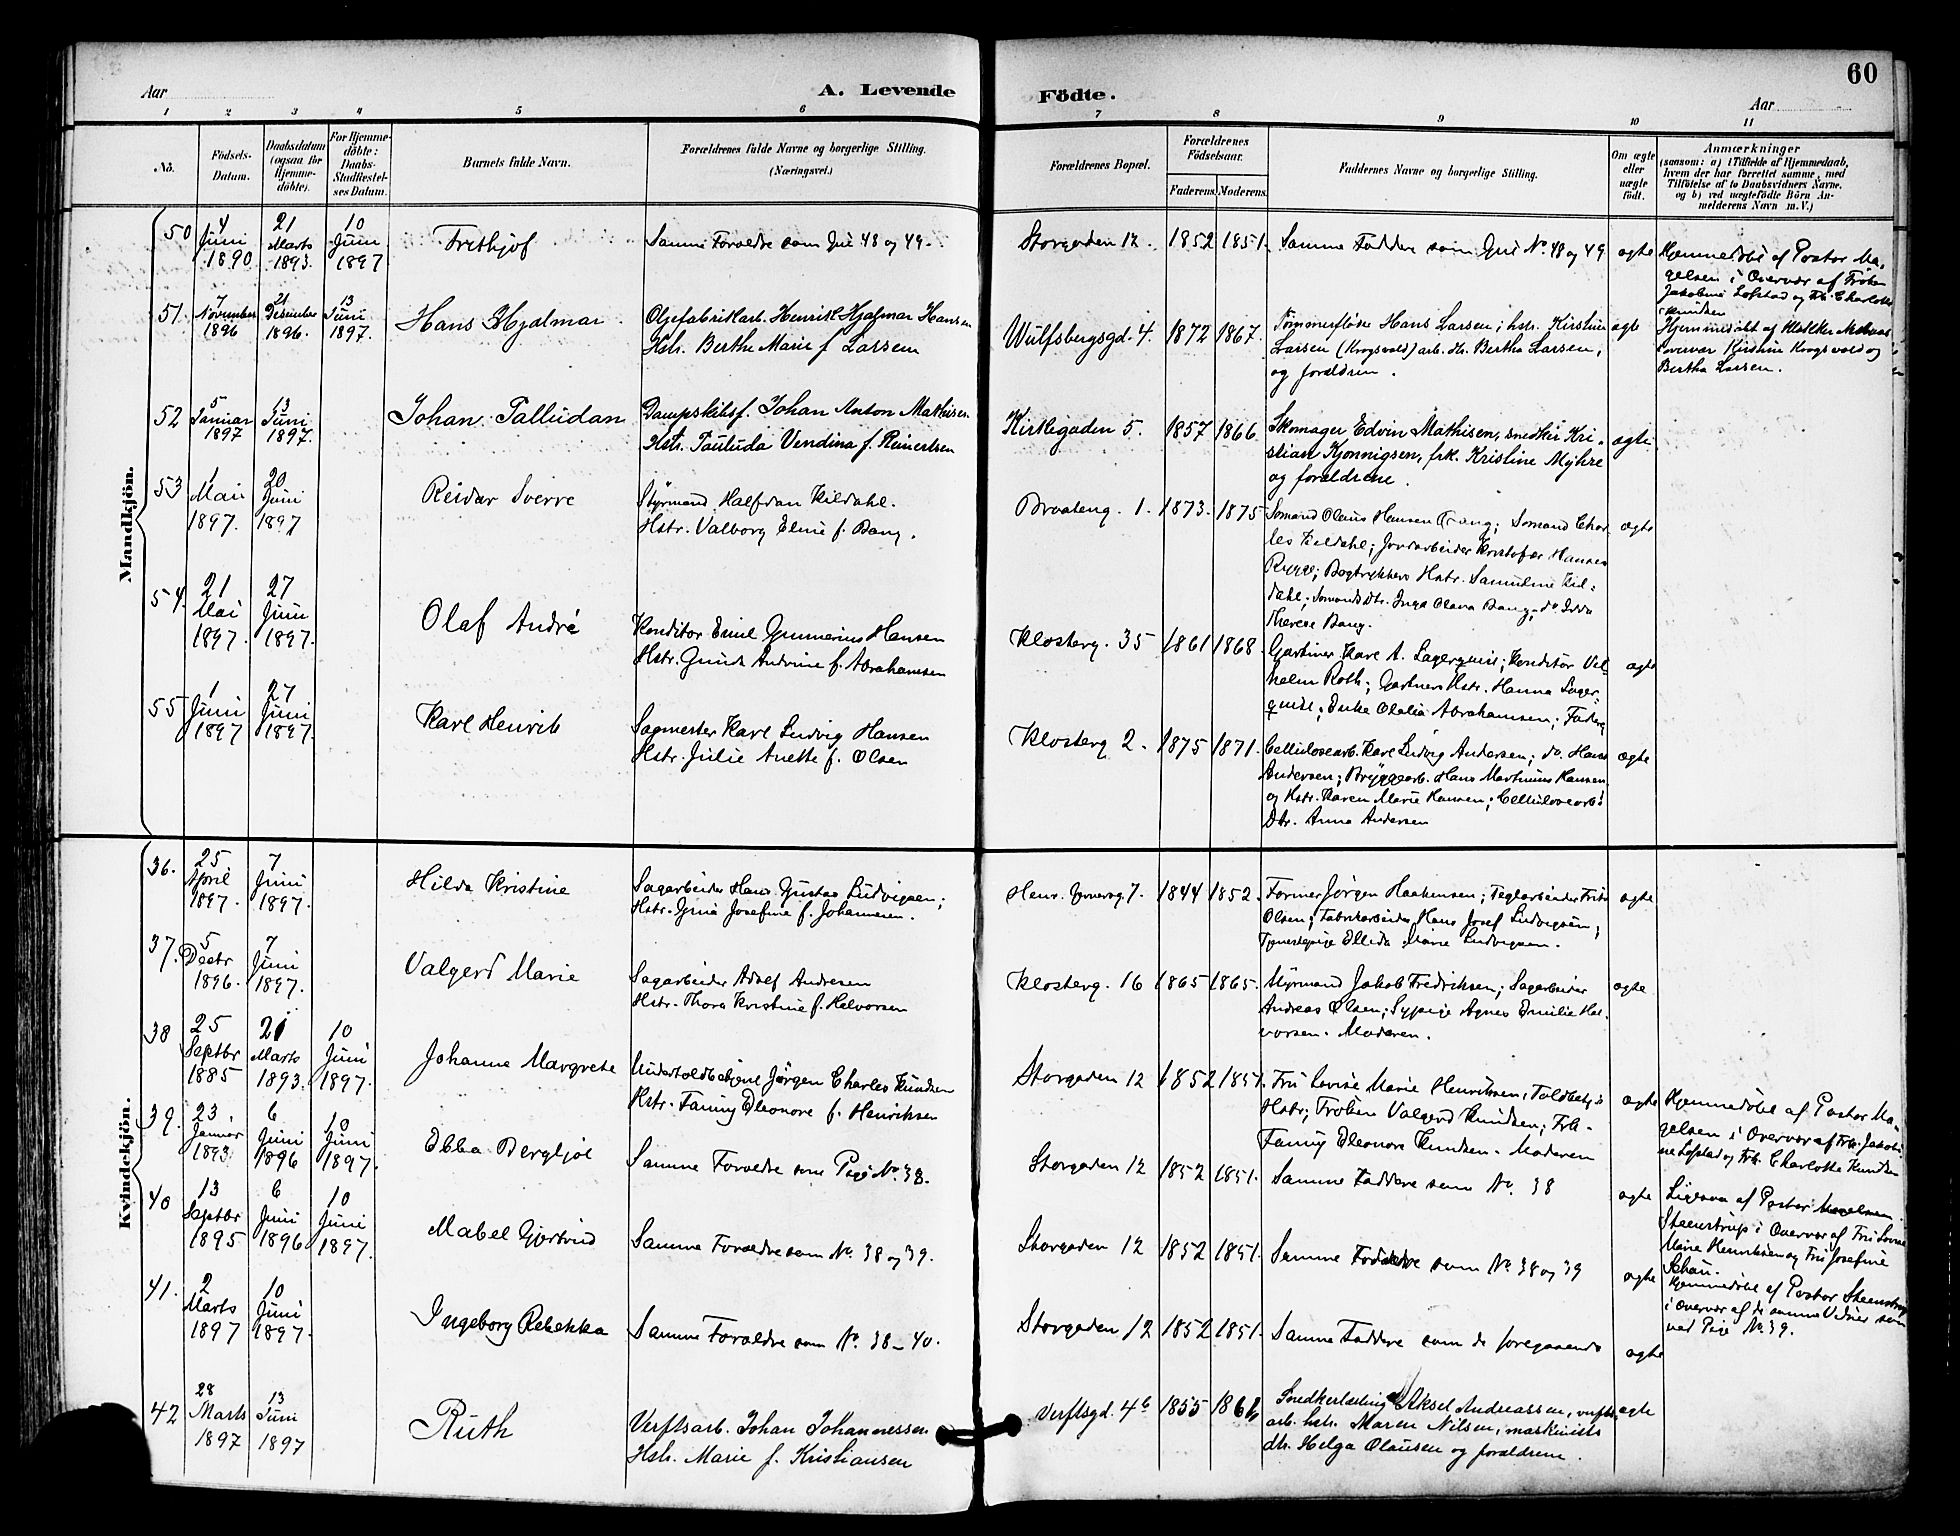 60
Aar
A. Levende
Födte.
Aar
1 2 3 4 5 6 7 8 9 10 11
No.
Födsels-
Datum.
Daabsdatum
(ogsaa for
Hjemme-
döbte).
For Hjemme-
döbte:
Daabs-
Stadfæstel-
ses Datum.
Barnets fulde Navn.
Forældrenes fulde Navne og borgerlige Stilling.
(Næringsvei.)
Forældrenes Bopæl.
Forældrenes
Födselsaar.
Faderens. Moderens.
Faddernes Navne og borgerlige Stilling.
Om ægte
eller
uægte
födt.
Anmærkninger
(saasom: a) i Tilfælde af Hjemmedaab,
hvem der har forrettet samme, med
Tilföielse af to Daabsvidners Navne.
og b) ved uægtefödte Börn An-
melderens Navn m. V.)
Mandkjön.
50
4
Juni
1890
21
Marts
1893.
10
Juni
1897
Frithjof
Samme Forældre som Gut 48 og 49.
Storgaden 12.
1852
1851.
Samme Faddere som Gut No. 48 og 49
ægte
Hjemmedöbt af Pastor Ma-
gelsen i Overvær af Fröken
Jakobine Lofstad og Frk. Charlotte
Knudsen
51.
7
November
1896
21
Desember
1896.
13
Juni
1897.
Hans Hjalmar.
Oljefabrikarb. Henrik Hjalmar Hansen
Hstr. Berthe Marie f. Larsen
Wulfsbergsgd. 4.
1872
1867.
Tömmerfløder Hans Larsen; hstr. Kirstine
Larsen (Krogsvold) arb. dtr. Bertha Larsen,
og forældrene.
ægte
Hjemmedøbt af
overvær Kirstine Krogsvold og
Bertha Larsen.
52
5
Januar
1897
13
Juni
1897.
Johan Palludan
Dampskibsf. Johan Anton Mathisen
Hstr. Pauluda Vendina f. Reinertsen
Kirkegaden 5.
1857
1866.
Skomager Edvin Mathisen, snedker Kri-
stian Kjønnigsen, frk. Kristine Myhre
og forældrene.
ægte
53
1
Mai
1897.
20
Juni
1897
Reidar Sverre
Styrmand Halfdan Kildahl.
Hstr. Valborg Eline f. Bang.
Braateng. 1.
1873.
1875
Sömand Olaus Hansen Bang; Sömand Char-
les Kildahl; Jordarbeider Kristofer Hansen
Rygge; Bogtrykkers Hstr. Samuline Kil-
dahl; Sömands Dtr. Inga Olava Bang; do. Ida
Therese Bang.
ægte
54.
21
Mai
1897.
27
Juni
1897.
Olaf André
Konditor Emil Gunnerius Hansen
Hstr. Gunda Andrine f. Abrahamsen
Klosterg. 35
1861
1868.
Gartner Karl A. Lagerquist; Konditor Vil-
helm Roth; Gartners Hstr. Hanna Lager-
quist; Enke Olalia Abrahamsen; Faderen
ægte
55
1
Juni
1897
27
Juni
1897.
Karl Henrik
Sagmester Karl Ludvig Hansen
Hstr. Julie Anette f. Olsen
Klosterg 2.
1875
1871.
Cellulosearb. Karl Ludvig Andersen; do. Hans
Andersen; Bryggearb. Hans Martinius Hansen
og Hstr. Karen Marie Hansen; Cellulosearb.
Dtr. Anna Andersen
ægte
Kvindekjön.
36.
25
April
1897.
7
Juni
1897.
Hilda Kristine
Sagarbeider Hans Gustav Ludvigsen;
Hstr. Gina Josefine f. Johannesen.
Henr. 7.
1844
1852.
Former Jörgen Haakensen; Teglarbeider Frits
Olsen; Fabrikarbeider Hans Josef Ludvigsen;
Tjenestepige Ellida Marie Ludvigsen.
ægte
37.
5
Decbr
1896.
7
Juni
1897.
Valgerd Marie
Sagarbeider Adolf Andresen
Hstr. Thora Kristine f. Halvorsen
Klosterg. 16
1865
1865.
Styrmand Jakob Fredriksen; Sagarbeider
Andreas Olsen; Sypige Agnes Emilie Hal-
vorsen. Moderen.
ægte
38
25
Septbr
1885
21
Marts
1893.
10
Juni
1897.
Johanne Margrete
Underholdbetjent Jörgen Charles Knudsen
Hstr. Fanny Eleonore f. Henriksen
Storgaden 12
1852
1851.
Fru Lovise Marie Henriksen, Toldbetj's
Hstr; Fröken Valgerd Knudsen; Frk-
Fanny Eleonora Knudsen. Moderen
ægte
Hjemmedöbt af Pastor Ma-
gelsen i Overvær af Frk. Jakobi-
ne Lofstad og Frk. Charlotte Knudsen
39.
23.
Januar
1893
6
Juni
1896
10
Juni
1897.
Ebba Bergljot
Samme Forældre som Pige No. 38.
Storgaden 12
1852
1851.
Samme Faddere som No. 38
ægte
Ligesaa af Pastor
Steenstrup i Overvær af Fru Lovise
Marie Henriksen og Fru Josefine
40
13
Septbr
1895
6
Juni
1896
10
Juni
1897.
Mabel Gjertrud
Samme Forældre som No. 38 og 39.
Storgaden 12
1852
1851.
Samme Faddere som No. 38 og 39
ægte
Hjemmedöbt af Pastor Steenstrup
i Overvær af de samme Vidner som
ved Pige No. 39.
41.
2
Marts
1897
10
Juni
1897.
Ingeborg Rebekka
Samme Forældre som No. 38-40.
Storgaden 12
1852
1851.
Samme Faddere som de foregaaende
ægte
42
28
Marts
1897
13
Juni
1897
Ruth
Verftsarb. Johan Johannessen
Hstr. Marie f. Kristiansen
Verftsgd. 4b
1855
Snedkerlærling Aksel Andreassen, verfts-
arb. hstr. Maren Nilsen, maskinists
dtr. Helga Olausen og forældrene.
ægte